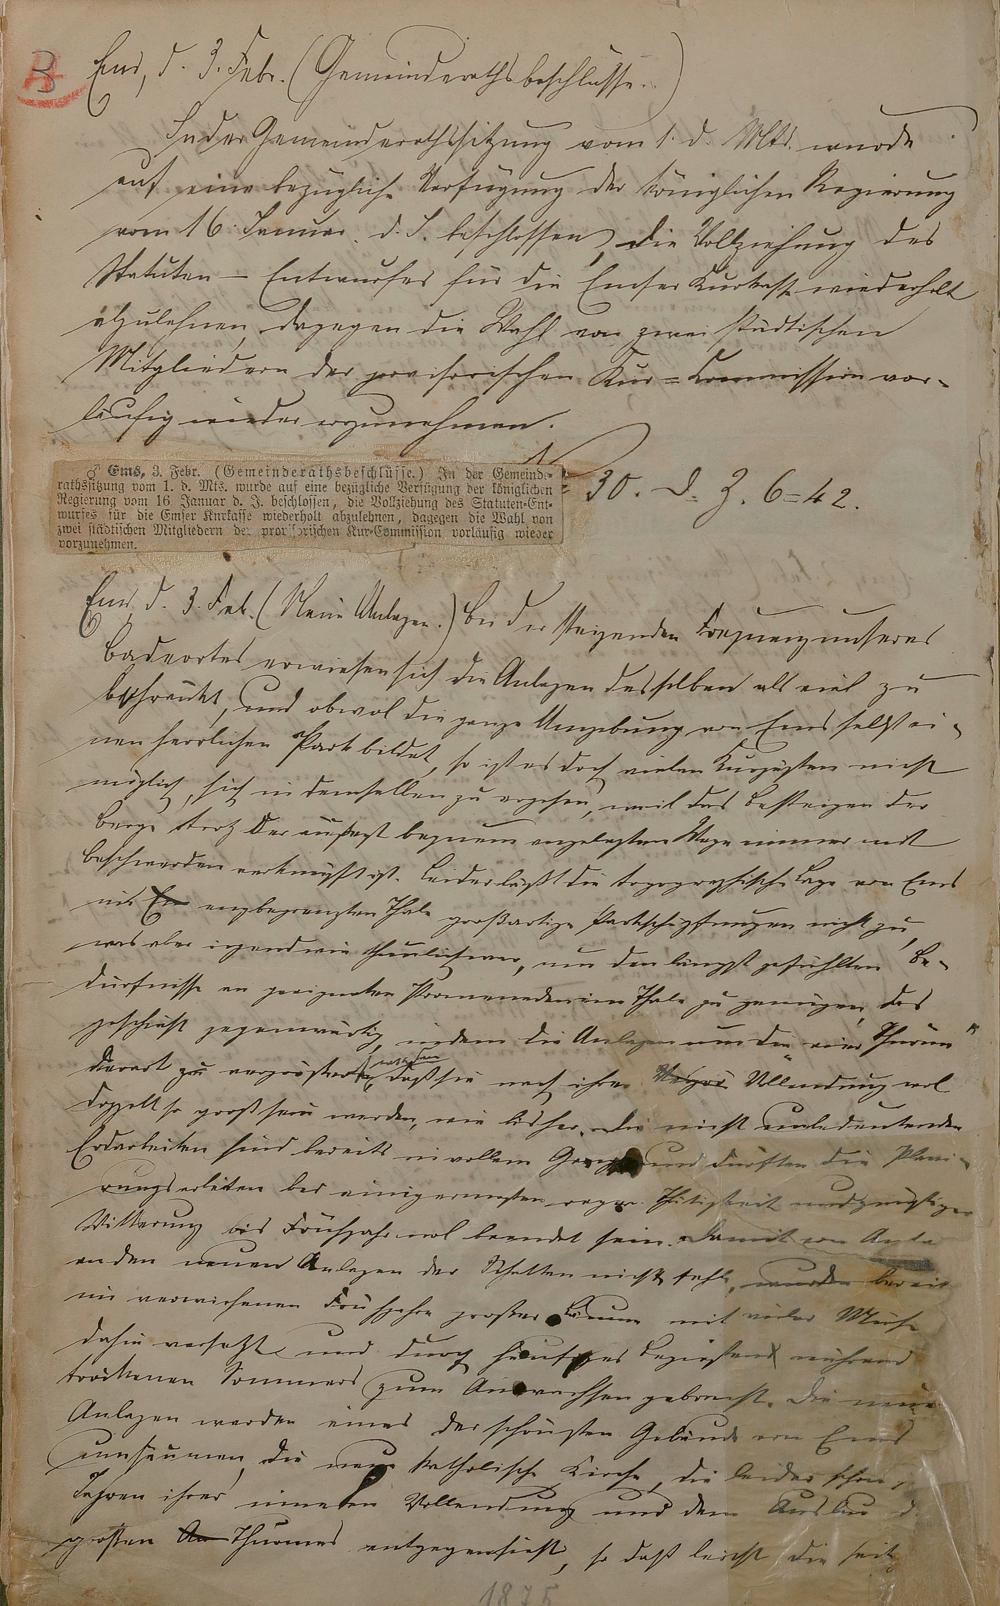 B
Ems, d. 3. Febr. (Gemeinderathsbeschlüsse.)
In der Gemeinderathssitzung vom 1. d. Mts. wurde
auf eine bezügliche Verfügung der königlichen Regierung
vom 16. Januar d. J. beschlossen, die Vollziehung des
Statuten-Entwurfes für die Emser Kurkasse wiederholt
abzulehnen, dagegen die Wahl von zwei städtischen
Mitgliedern der provisorischen Kur=Commission vor-
läufig wieder vorzunehmen.
♂ Ems, 3. Febr. (Gemeinderathsbeschlüsse.) In der Gemeinde-
rathssitzung vom 1. d. Mts. wurde auf eine bezügliche Verfügung der königlichen
Regierung vom 16 Januar d. J. beschlossen, die Vollziehung des Statuten-Ent-
wurfes für die Emser Kurkasse wiederholt abzulehnen, dagegen die Wahl von
zwei städtischen Mitgliedern der provisorischen Kur-Commission vorläufig wieder
vorzunehmen.
30. d. Z. 6=42.
Ems, d. 3. Feb. (Neue Anlagen.) Bei der steigenden Frequenz unseres
Badeortes erwiesen sich die Anlagen desselben als viel zu
beschränkt, und obwol die ganze Umgebung von Ems selbst ei-
nen herrlichen Park bildet, so ist es doch vielen Kurgästen nicht
möglich, sich in demselben zu ergehen, weil das Besteigen der
Berge trotz der äußerst bequem angelegten Wege immer mit
Beschwerden verknüpft ist. Leider läßt die topographische Lage von Ems
im engbegrenzten Thale großartige Parkschöpfungen nicht zu,
was aber irgendwie thunlich war, um den längst gefühlten Be-
dürfnisse an geeigneten Promenaden im Thale zu genügen, das
geschieht gegenwärtig, indem die Anlagen um die "vier Thürme"
derart zu vergrößern, daß sie nach ihrer Vollendung wol
doppelt so groß sein werden, wie bisher. Die nicht unbedeutenden
Erdarbeiten sind bereits in vollem Gange und dürften die Plani-
rungsarbeiten bei einigermaßen reger Thätigkeit und günstiger
Witterung bis Frühjahr wol beendet sein. Damit von
an den neuen Anlagen der Schatten nicht fehle, wurden bereit
im verwichenen Frühjahre große Bäume mit vieler Mühe
dahin versetzt und durch häufiges Begießen während
trockenen Sommers zum Anwachsen gebracht. Die neue
Anlagen werden eines der schönsten Gebäude von Ems
umsäumen, die neue katholische Kirche, die leider schon
Jahren ihrer inneren Vollendung und dem Ausbau d
großen Thurmes entgegensieht, so daß leicht die seit
1875